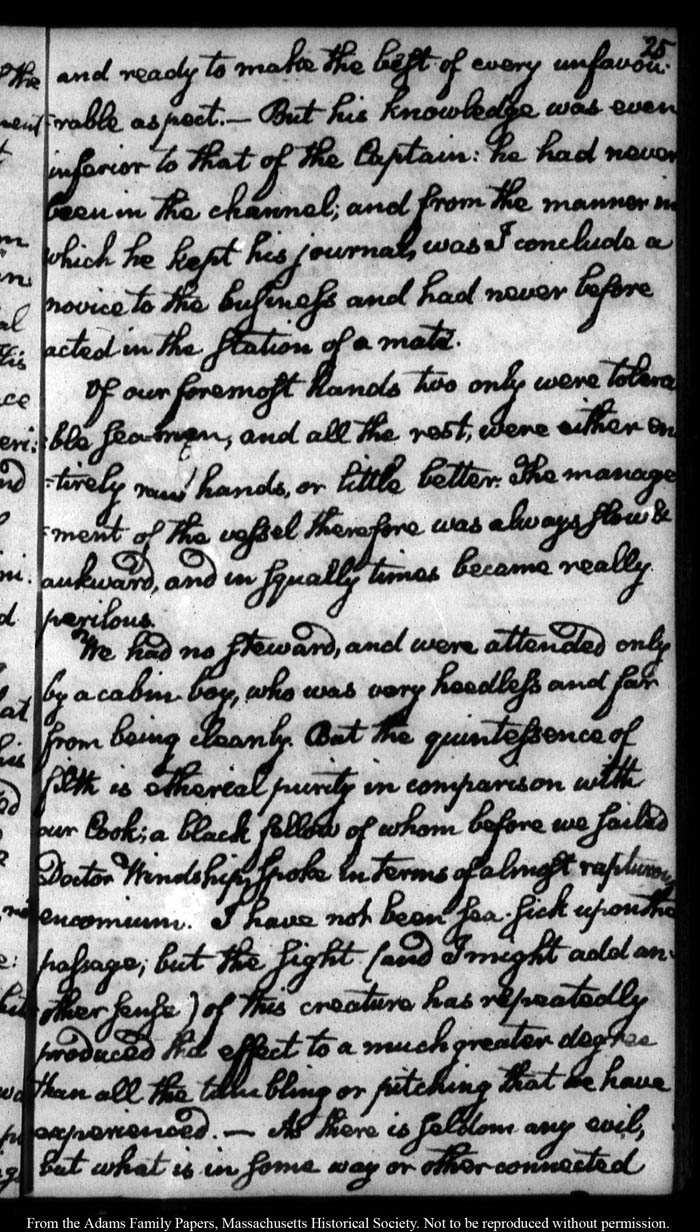 25
and ready to make the best of every unfavou-
-rable aspect.— But his knowledge was even
inferior to that of the Captain: he had never
been in the channel; and from the manner in
which he kept his journal, was I conclude a
novice to the business and had never before
acted in the station of a mate.
Of our foremost hands two only were tolera
-ble sea-men, and all the rest, were either en
-tirely raw hands, or little better. The manage
-ment of the vessel therefore was always slow &
aukward, and in squally times became really
perilous.
We had no steward, and were attended only
by a cabin-boy, who was very heedless and far
from being cleanly. But the quintessence of
filth is ethereal purity in comparison with
our Cook; a black fellow of whom before we sailed
Doctor Windship, spoke in terms of almost rapturous
encomium. I have not been sea-sick upon the
passage; but the sight (and I might add an-
other sense) of this creature has repeatedly
produced the effect to a much greater degree
than all the tumbling or pitching that we have
experienced.— As there is seldom any evil,
but what is in some way or other connected
From the Adams Family Papers, Massachusetts Historical Society. Not to be reproduced without permission.